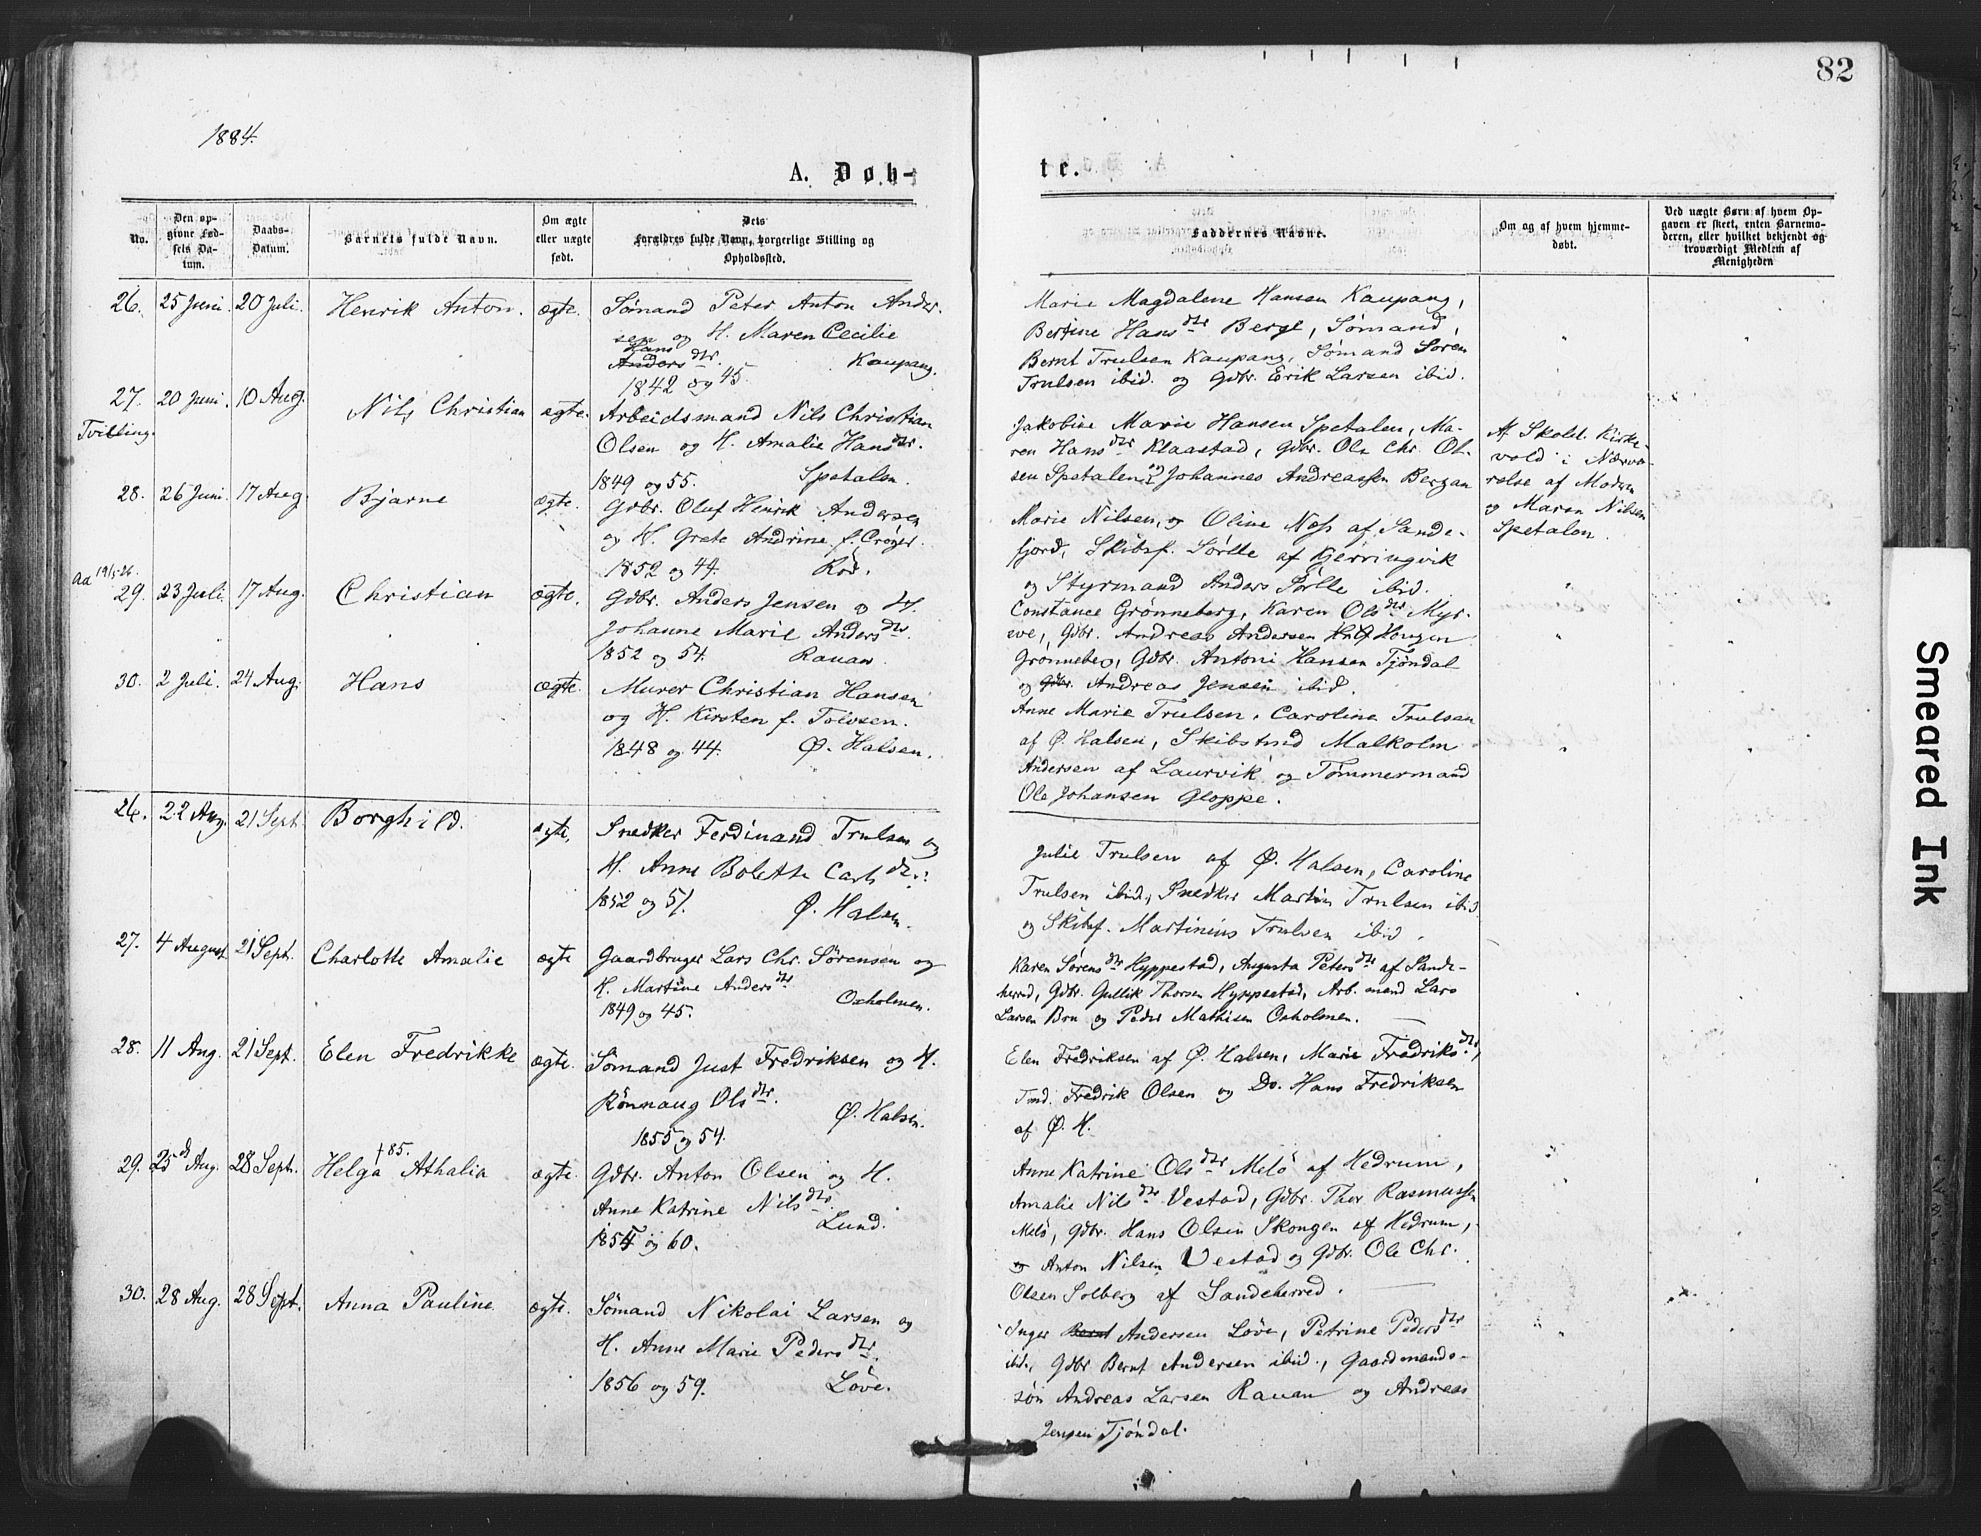 82
1884.
A. Døb-
te.
No.
Den op-
givne Fød-
sels Da-
tum.
Daabs-
Datum.
Barnets fulde Navn.
Om ægte
eller uægte
født.
Dets
Forældres fulde Navn, borgerlige Stilling og
Opholdssted.
Faddernes Navne.
Om og af hvem hjemme-
døbt.
Ved uægte Børn af hvem Op-
gaven er skeet, enten Barnemo-
deren, eller hvilket bekjendt og
troværdigt Medlem af
Menigheden
26. 25 Juni. 20 Juli. Henrik Anton. ægte. Sømand Peter Anton Ander-
sen og H. Maren Cecilie
Hans
Anders dtr Kaupang.
1842 og 45.
Marie Magdalene Hansen Kaupang,
Bertine Hansdtr Berge, Sømand,
Bernt Trulsen Kaupang, Sømand Søren
Trulsen ibid. og Gdbr. Erik Larsen ibid.
27. 20 Juni. 10 Aug. Nils Christian ægte. Arbeidsmand Nils Christian
Tvilling.
Olsen og H. Amalie Hansdtr.
1849 og 55. Spetalen.
Jakobine Marie Hansen Spetalen, Ma-
ren Hansdtr Klaastad, Gdbr. Ole Chr. Ol-
sen Spetalen og Johannes Andreassen Bergan
Af Skolel. Kirke-
vold i Nærvæ-
relse af Moderen
og Maren Nilsen
Spetalen.
28. 26 Juni. 17 Aug. Bjarne ægte. Gdbr. Oluf Henrik Andersen
og H. Grete Andrine f. Crøger.
1852 og 44. Rød.
Marie Nilsen, og Oline Næss af Sande-
fjord, Skibsf. Sørlle af Kjerringvik
og Styrmand Anders Sørlle ibid.
aa 19/5-26.
29. 23 Juli. 17 Aug. Christian ægte. Gdbr. Anders Jensen og H.
Johanne Marie Andersdtr.
1852 og 54. Rauan.
Constance Grønneberg, Karen Olsdtr Myr-
ene, Gdbr. Andreas Andersen Haugen
Grønneberg, Gdbr. Antoni Hansen Tjøndal
og Gdbr. Andreas Jensen ibid.
30. 2 Juli. 24 Aug. Hans ægte. Murer Christian Hansen
og H. Kirsten f. Toivsen.
1848 og 44. Ø. Halsen.
Anne Marie Trulsen, Caroline Trulsen
af Ø. Halsen, Skibstmd Malkolm
Andersen af Laurvik og Tømmermand
Ole Johansen Gloppe.
26. 22 Aug. 21 Sept. Borghild. ægte. Snedker Ferdinand Trulsen og
H. Anne Bolette Carlsdtr.:
1852 og 51. Ø. Halsen.
Julie Trulsen af Ø. Halsen, Caroline
Trulsen ibid., Snedker Martin Trulsen ibid
og Skibsf. Martinius Trulsen ibid.
27. 4 August. 21 Sept. Charlotte Amalie ægte Gaardbruger Lars Chr. Sørensen og
H. Martine Andersdtr
1849 og 45. Oxholmen.
Karen Sørensdtr Hyppestad, Augusta Petersdtr af Sande-
herred, Gdbr. Gullik Thorsen Hyppestad, Arb.mand Lars
Larsen Bru og Peder Mathisen Oxholmen.
28. 11 Aug. 21 Sept. Elen Fredrikke ægte. Sømand Just Fredriksen og H.
Rønnaug Olsdtr. Ø. Halsen.
1855 og 54.
Elen Fredriksen af Ø. Halsen, Marie Fredriksdtr,
Tmd. Fredrik Olsen og Do. Hans Fredriksen
af Ø. H.
†85.
29. 25de Aug. 28 Sept. Helga Athalia ægte. Gdbr. Anton Olsen og H.
Anne Katrine Nilsdtr.
Lund.
1854 og 60.
Anne Katrine Olsdtr Melø af Hedrum,
Amalie Nilsdtr Vestad, Gdbr. Thor Rasmussen
Melø, Gdbr. Hans Olsen Skongen af Hedrum,
og Anton Nilsen Vestad og Gdbr. Ole Chr.
Olsen Solberg af Sandeherred.
30. 28 Aug. 28 Sept. Anna Pauline ægte. Sømand Nikolai Larsen og
H. Anne Marie Pedersdtr.
1856 og 59. Løve.
Inger Bernt Andersen Løve, Petrine Pedersdtr
ibd., Gdbr Bernt Andersen ibid., Gaardmands-
søn Andreas Larsen Rauan og Andreas
Jensen Tjøndal.
Smeared Ink